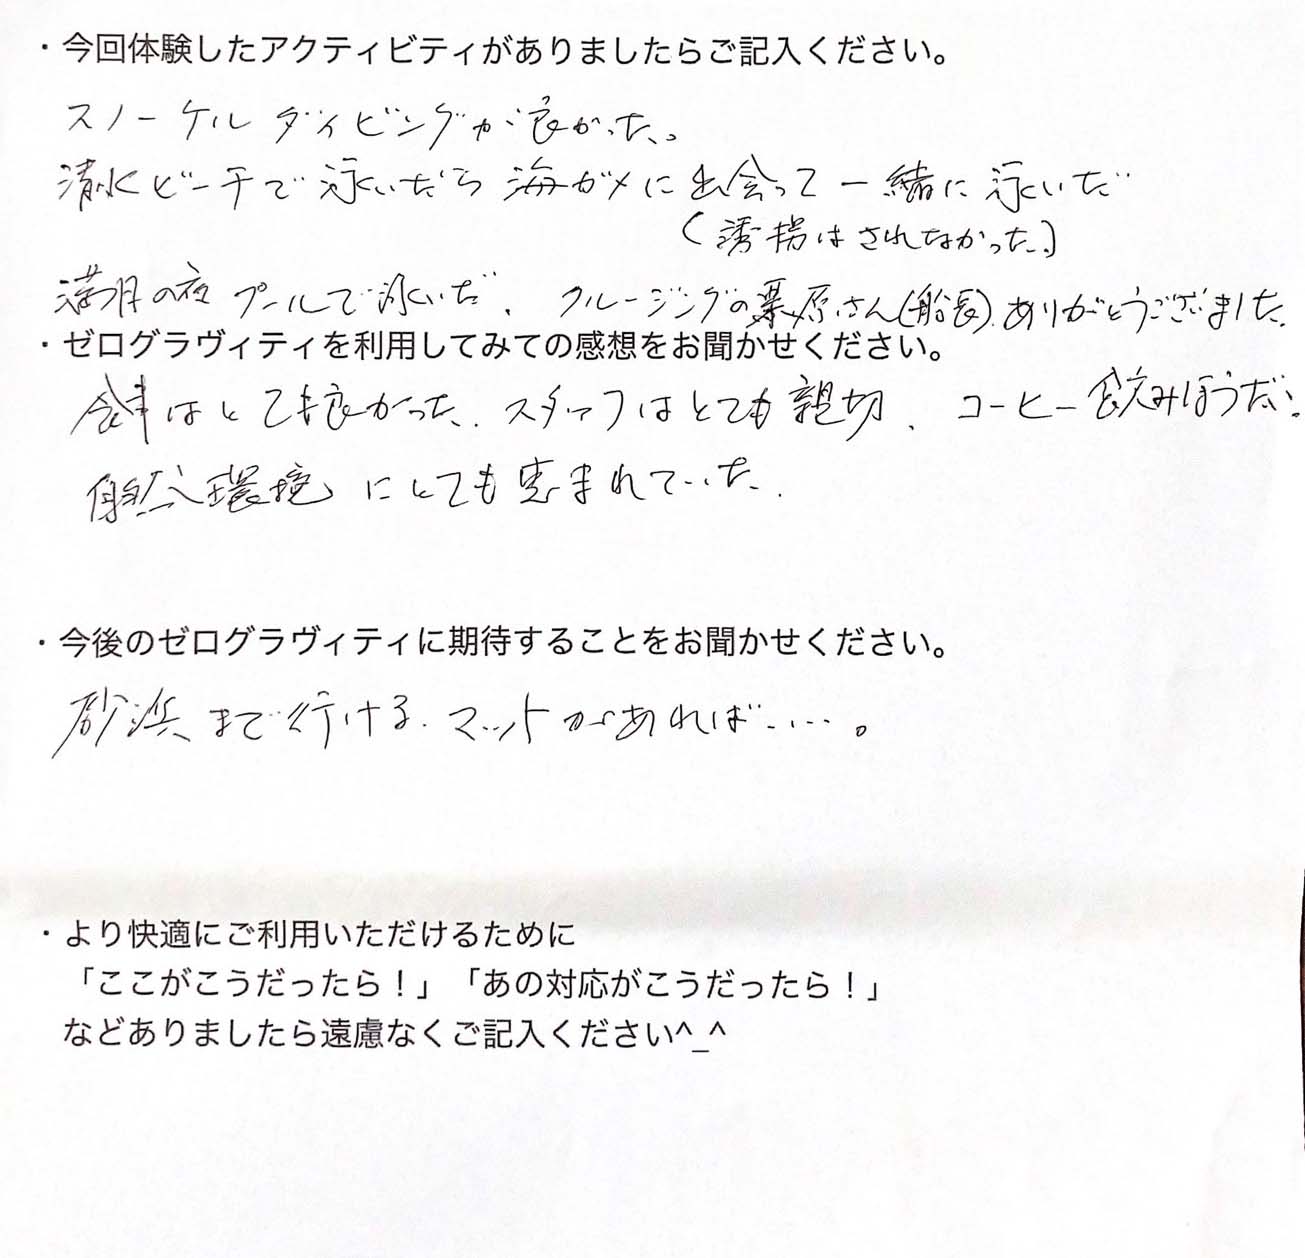 ・今回体験したアクティビティがありましたらご記入ください。
スノーケルダイビングが良かった。
清水ビーチで泳いだら海ガメに出会って一緒に泳いだ
(誘拐はされなかった。)
満月の夜プールで泳いだ。クルージングの栗原さん(船長)ありがとうございました。
・ゼログラヴィティを利用してみての感想をお聞かせください。
食事はとても良かった。スタッフはとても親切。コーヒー飲みほうだい。
自然環境にとても恵まれていた。
・今後のゼログラヴィティに期待することをお聞かせください。
砂浜まで行けるマットがあれば……。
・より快適にご利用いただけるために
「ここがこうだったら!」「あの対応がこうだったら!」
などありましたら遠慮なくご記入ください^_^